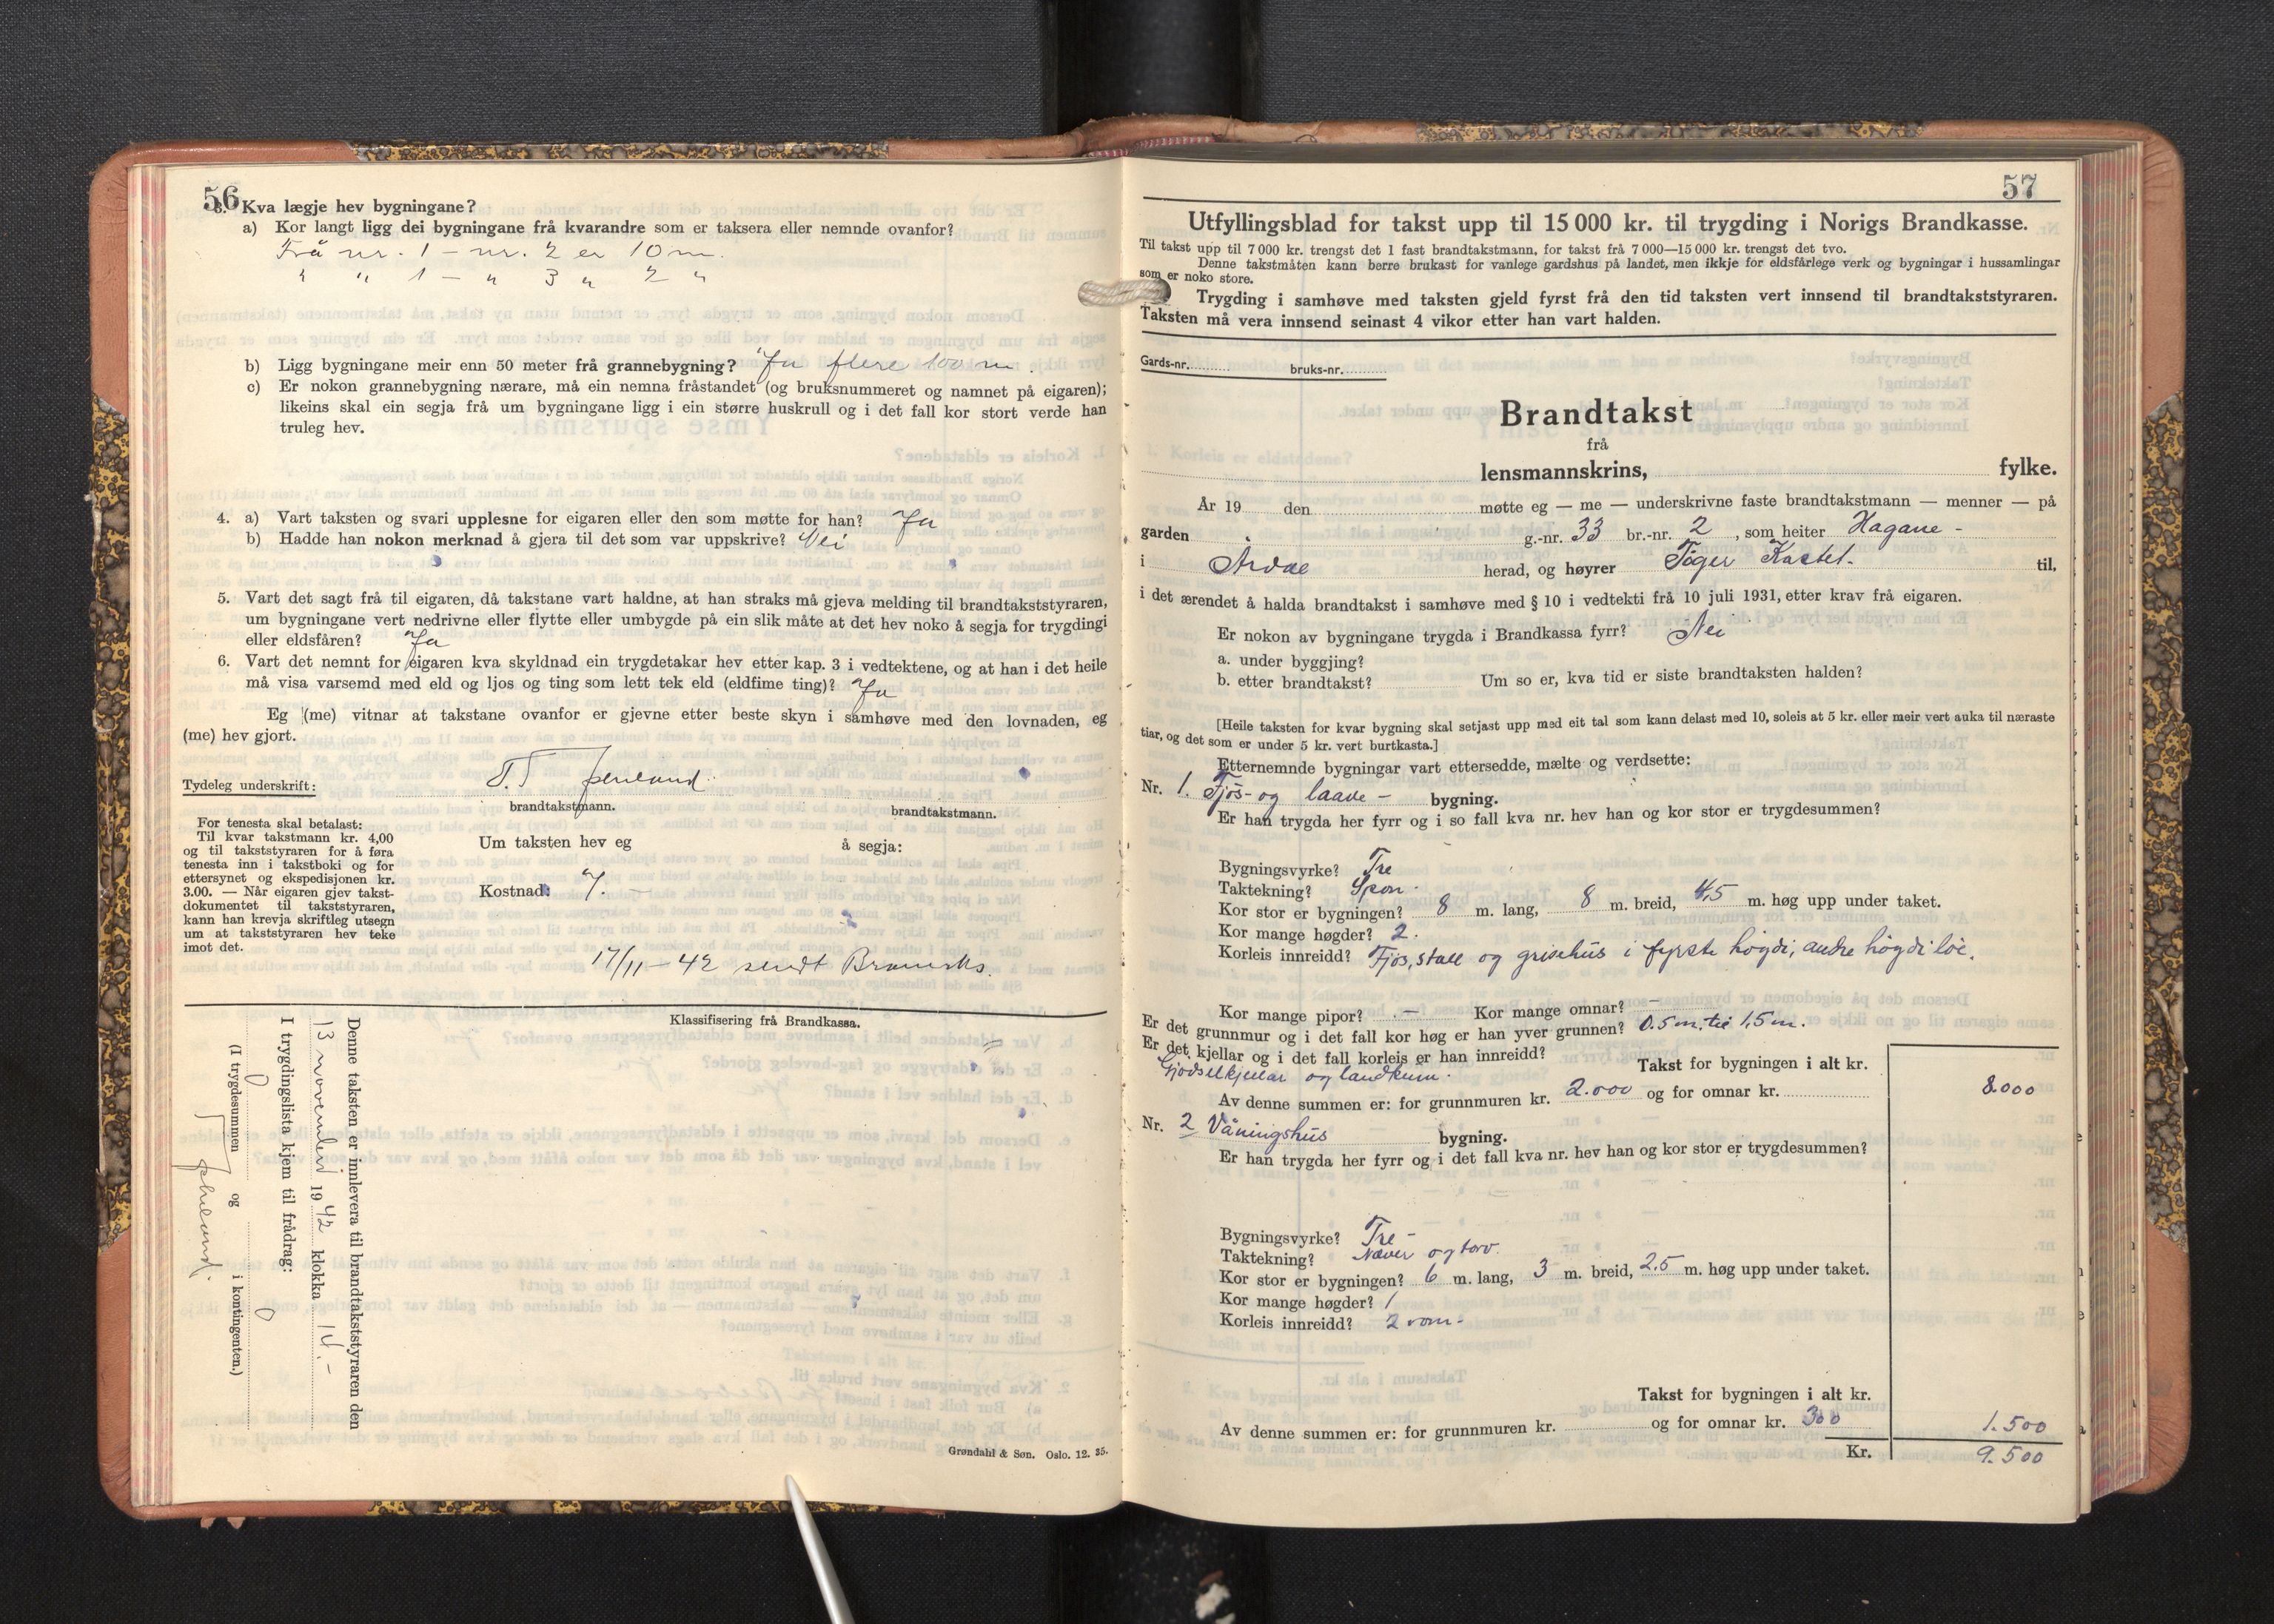 56
3. Kva lægje hev bygningane?
a) Kor langt ligg dei bygningane frå kvarandre som er taksera eller nemnde ovanfor?
Frå nr. 1 - nr. 2 er 10 m.
" " 1 - " 3 " 2 "
b) Ligg bygningane meir enn 50 meter frå grannebygning? Ja flere 100 m.
c) Er nokon grannebygning nærare, må ein nemna fråstandet (og bruksnummeret og namnet på eigaren);
likeins skal ein segja frå um bygningane ligg i ein større huskrull og i det fall kor stort verde han
truleg hev.
4. a) Vart taksten og svari upplesne for eigaren eller den som møtte for han? Ja
b) Hadde han nokon merknad å gjera til det som var uppskrive? Nei
5. Vart det sagt frå til eigaren, då takstane vart haldne, at han straks må gjeva melding til brandtakststyraren,
um bygningane vert nedrivne eller flytte eller umbygde på ein slik måte at det hev noko å segja for trygdingi
eller eldsfåren? Ja
6. Vart det nemnt for eigaren kva skyldnad ein trygdetakar hev etter kap. 3 i vedtektene, og at han i det heile
må visa varsemd med eld og ljos og ting som lett tek eld (eldfime ting)? Ja
Eg (me) vitnar at takstane ovanfor er gjevne etter beste skyn i samhøve med den lovnaden, eg
(me) hev gjort.
Tydeleg underskrift:
brandtakstmann. brandtakstmann.
For tenesta skal betalast:
Til kvar takstmann kr. 4,00
og til takststyraren for å føra
tenesta inn i takstboki og for
ettersynet og ekspedisjonen kr.
3.00. — Når eigaren gjev takst-
dokumentet til takststyraren,
kann han krevja skriftleg utsegn
um at takststyraren hev teke
imot det.
Um taksten hev eg å segja:
Kostnad: 7. -
17/11 - 42 sendt
Klassifisering frå Brandkassa.
Denne taksten er innlevera til brandtakststyraren den
13 november 1942 klokka 14. -
I trygdingslista kjem til frådrag:
0 0
(I trygdesummen og i kontingenten.)
Grøndahl & Søn. Oslo. 12. 35.
57
Utfyllingsblad for takst upp til 15 000 kr. til trygding i Norigs Brandkasse.
Til takst upp til 7 000 kr. trengst det 1 fast brandtakstmann, for takst frå 7 000—15 000 kr. trengst det tvo.
Denne takstmåten kann berre brukast for vanlege gardshus på landet, men ikkje for eldsfårlege verk og bygningar i hussamlingar
som er noko store.
Trygding i samhøve med taksten gjeld fyrst frå den tid taksten vert innsend til brandtakststyraren.
Taksten må vera innsend seinast 4 vikor etter han vart halden.
Gards-nr. bruks-nr.
Brandtakst
frå
lensmannskrins, fylke.
År 19 den møtte eg — me — underskrivne faste brandtakstmann — menner — på
garden g.-nr. 33 br.-nr. 2, som heiter Hagane -
i Årdal herad, og høyrer Tøger Kastet. til,
i det ærendet å halda brandtakst i samhøve med § 10 i vedtekti frå 10 juli 1931, etter krav frå eigaren.
Er nokon av bygningane trygda i Brandkassa fyrr? Nei
a. under byggjing?
b. etter brandtakst? Um so er, kva tid er siste brandtaksten halden?
[Heile taksten for kvar bygning skal setjast upp med eit tal som kann delast med 10, soleis at 5 kr. eller meir vert auka til næraste
tiar, og det som er under 5 kr. vert burtkasta.]
Etternemnde bygningar vart ettersedde, mælte og verdsette:
Nr. 1. Fjøs- og laave - bygning.
Er han trygda her fyrr og i so fall kva nr. hev han og kor stor er trygdesummen?
Bygningsvyrke? Tre
Taktekning? Spon.
Kor stor er bygningen? 8 m. lang, 8 m. breid, 4,5 m. høg upp under taket.
Kor mange høgder? 2.
Korleis innreidd? Fjøs, stall og grisehus i fyrste høgdi, andre høgdi løe.
Kor mange pipor? - Kor mange omnar? -
Er det grunnmur og i det fall kor høg er han yver grunnen? 0.5 m. til 1,5 m.
Er det kjellar og i det fall korleis er han innreidd?
Gjødselkjellar og landkum.
Takst for bygningen i alt kr. 8.000
Av denne summen er: for grunnmuren kr. 2.000 og for omnar kr.
Nr. 2 Våningshus bygning.
Er han trygda her fyrr og i det fall kva nr. hev han og kor stor er trygdesummen?
Bygningsvyrke? Tre -
Taktekning? Næver og torv.
Kor stor er bygningen? 6 m. lang, 3 m. breid, 2.5 m. høg upp under taket.
Kor mange høgder? 1
Korleis innreidd? 2 rom -
Takst for bygningen i alt kr.
Av denne summen er: for grunnmuren kr. og for omnar kr. 300 1.500
Kr. 9.500